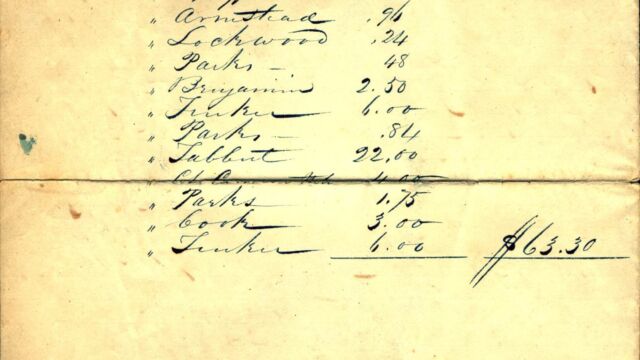 " Armstead .96
" Lockwood .24
" Parks — 48
" Benjamin 2.50
" Tucker 6.00
" Parks — .84
" Tabbut 22.00
" 4.00
" Parks 1.75
" Cook 3.00
" Tucker 6.00 $63.30